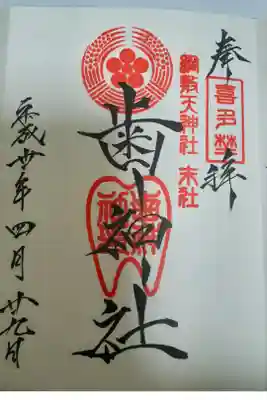 奉拝
喜多埜
綱敷天神社 末社
歯神社
歯神社
平成廿年四月廿九日